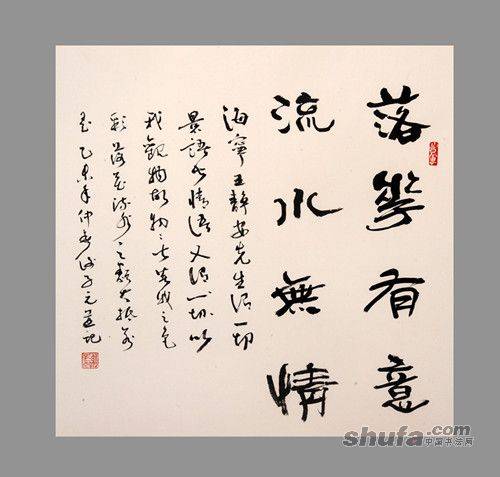 落華有意
流水無情
海寧王靜安先生謂一切
景語皆情語又謂一切以
我觀物故物皆我之色
彩落花流水之類大抵
乙未年仲子元並記
shufa.com
中国书法网